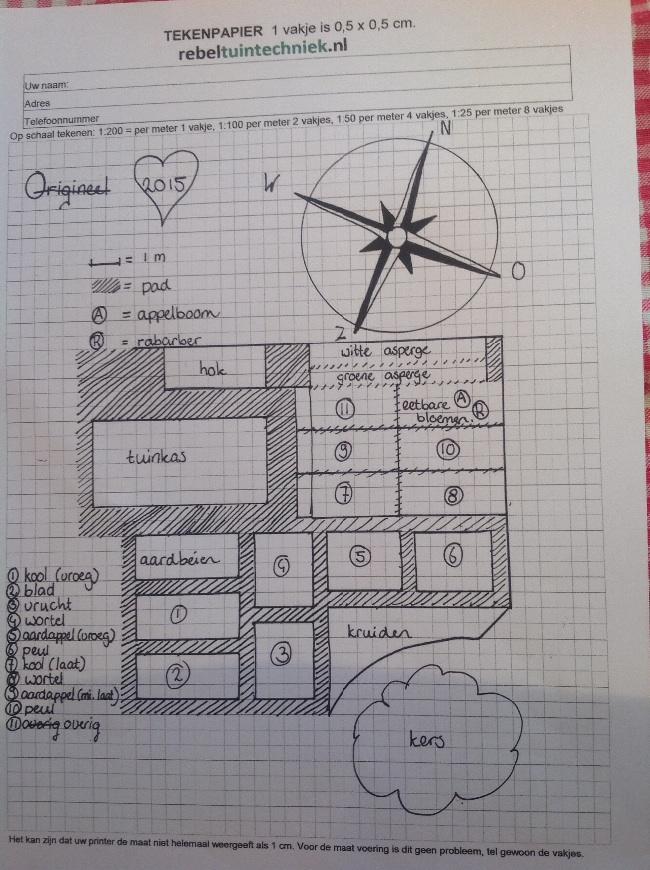 TEKENPAPIER 1 vakje is 0,5 x 0,5 cm.
rebeltuintechniek.nl
Uw naam:
Adres
Telefoonnummer
Op schaal tekenen: 1:200 = per meter 1 vakje, 1:100 per meter 2 vakjes, 1:50 per meter 4 vakjes, 1:25 per meter 8 vakjes
N
W
Origineel
2015
O
= 1 m
= pad
A = appelboom
Z
R = rabarber
witte asperge
hok
groene asperge
11
eetbare A
bloemen. R
tuinkas
9
10
7
8
aardbeien
4
5
6
1 kool (vroeg)
2 blad
3 vrucht
4 wortel
5 aardappel (vroeg)
6 peul
7 kool (laat)
8 wortel
9 aardappel (mi. laat)
10 peul
11 overig overig
1
kruiden
3
2
kers
Het kan zijn dat uw printer de maat niet helemaal weergeeft als 1 cm. Voor de maat voering is dit geen probleem, tel gewoon de vakjes.